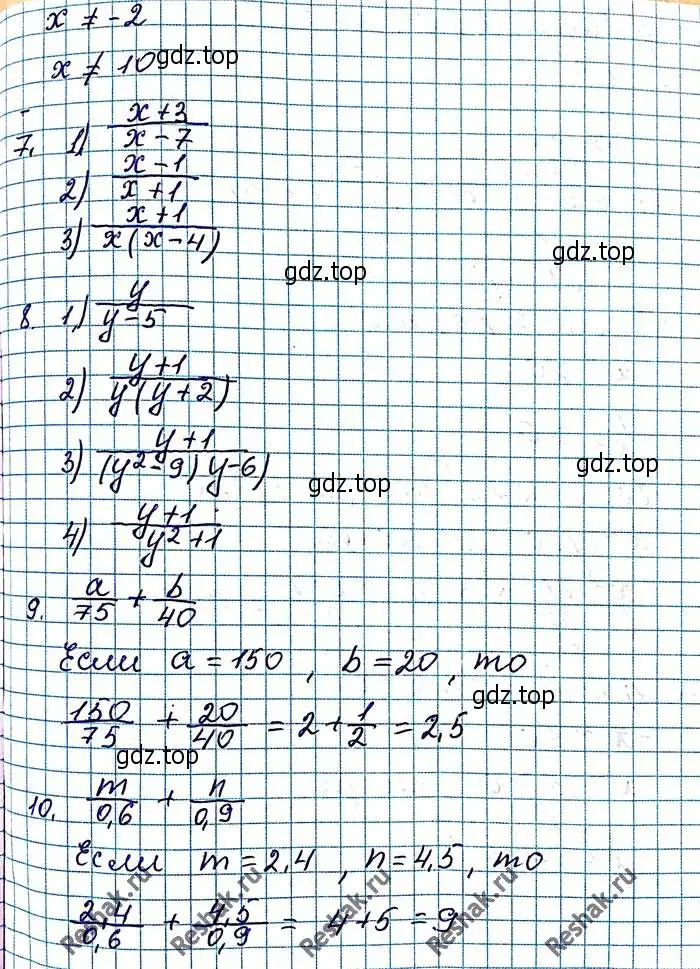 x ≠ -2
x ≠ 10
gdz.top
7. 1) (x+3)/(x-7)
2) (x-1)/(x+1)
3) (x+1)/(x(x-4))
gdz.top
gdz.top
8. 1) y/(y-5)
2) (y+1)/(y(y+2))
3) (y+1)/((y²-9)y-6)
gdz.top
gdz.top
4) (y+1)/(y²+1)
9. a/75 + b/40
Если a = 150, b = 20, то
gdz.top
150/75 + 20/40 = 2 + 1/2 = 2,5
gdz.top
10. m/0,6 + n/0,9
Если m = 2,4, n = 4,5, то
2,4/0,6 + 4,5/0,9 = 4+5 = 9
Reshak.ru
Reshak.ru
Reshak.ru
Reshak.ru
Reshak.ru